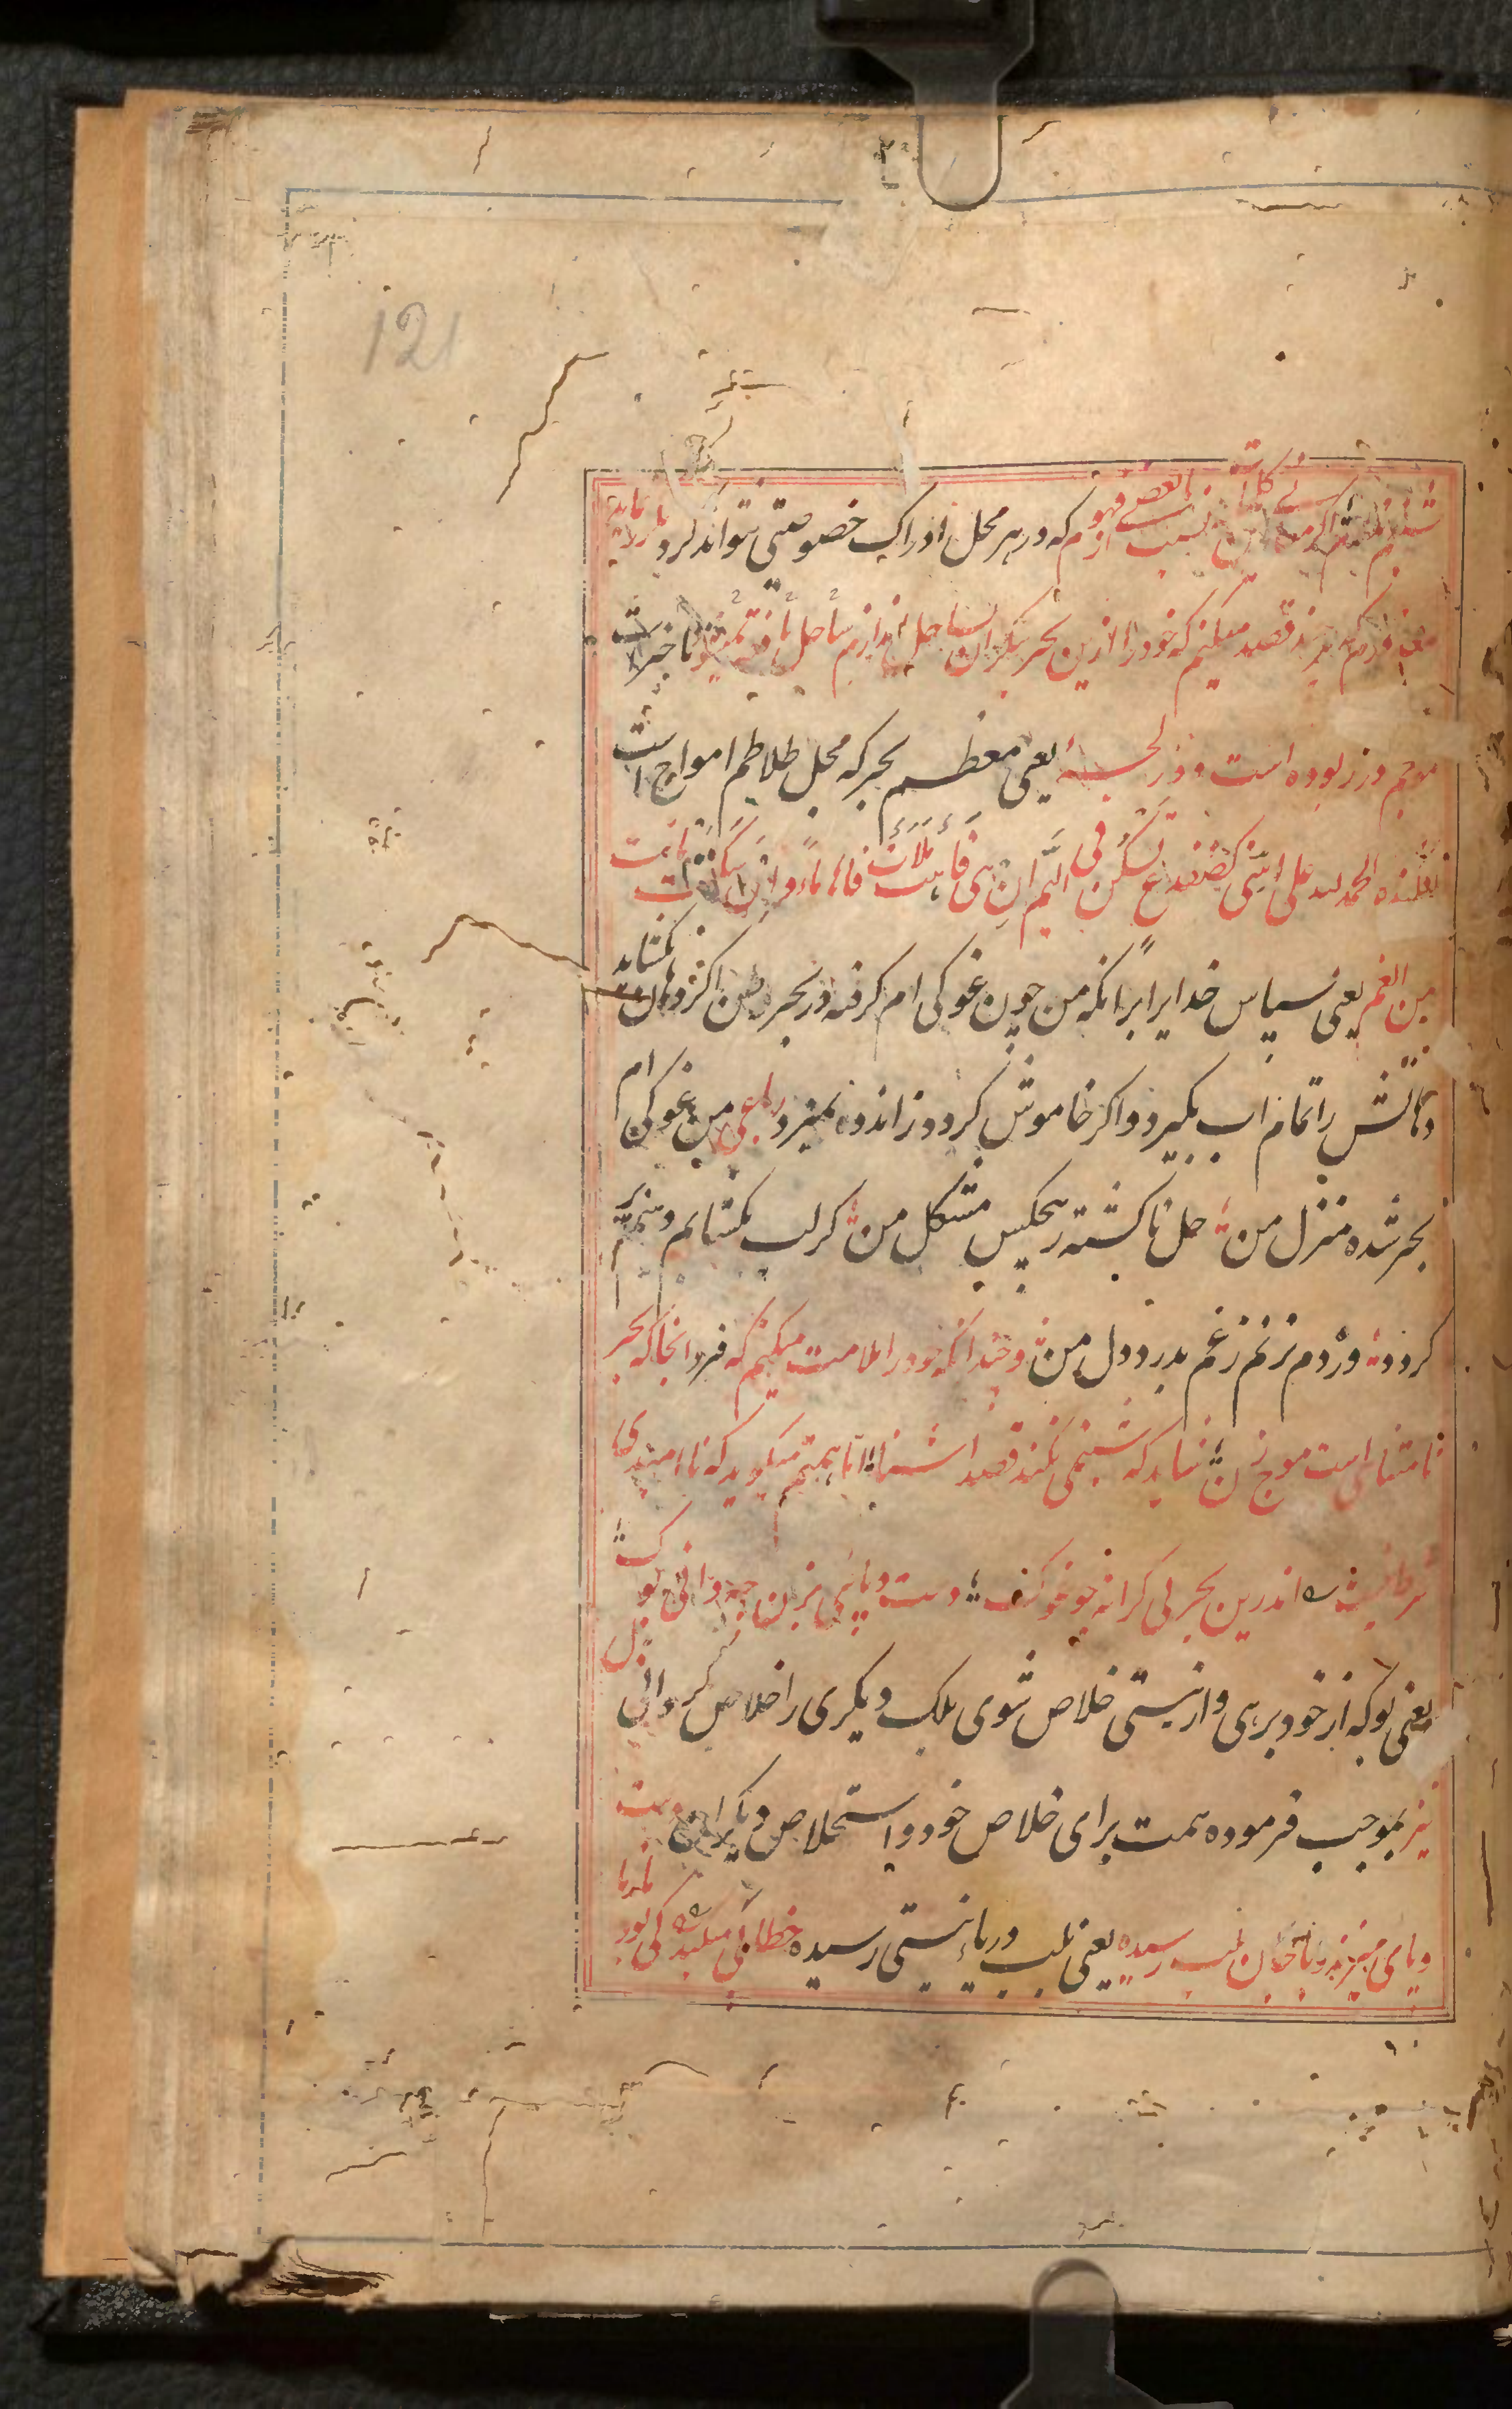 121
که در هر محل ادراک خصوصیتی نتواند کرد
قصد میکنم که خود را ازین بحر بیکران بساحل اندازم ساحل نایافته تا خبر
موجم در ربوده است و در لجهٔ یعنی معظم بحر که محل طلاطم امواج است
الحمد لله علی اننی کضفدع تسکن فی الیم ان هی فاهت ملات فاها ماء وان سکتت ماتت
من الغم یعنی سپاس خدایرا برانکه من چون غوکی ام کرفته در بحر وطن اکر دهان بکشاید
دهانش را تمام اب بکیرد و اکر خاموش کردد از اندوه بمیرد رباعی من غوکی ام
بحر شده منزل من حل ناکشته ز هیچکس مشکل من کر لب بکشایم دهنم پر
کردد ور دم نزنم ز غم بدرد دل من و چندانکه خود را ملامت میکنم که فرد انجا که بحر
نامتناهی است موج زن شاید که شبنمی نکند قصد اشنا اما همتم میکوید که ناامیدی
شرط نیست اندرین بحر بی کرانه چو غوک دست و پائی بزن چه دانی بوک
یعنی بوکه از خود برهی و از نیستی خلاص شوی بلک دیکری را خلاص کردانی
نیز بموجب فرموده همت برای خلاص خود و استخلاص دیکران دست
و پای میزند و با جان بلب رسیده یعنی بلب دریاء نیستی رسیده خطابی میکند کی بود